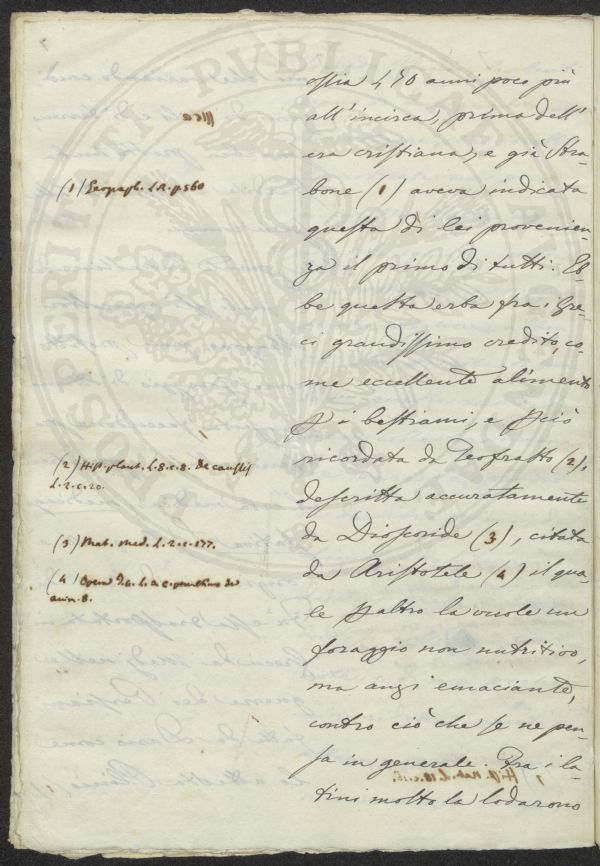 ossia 470 anni poco più
all'incirca, prima dell'
era cristiana, e già Stra-
bone (1) aveva indicata
questa di lei provenien-
za il primo di tutti. Eb-
be questa erba fra i Gre-
ci grandissimo credito, co-
me eccellente alimento
p i bestiami, e pciò
ricordata da Teofrasto (2),
descritta accuratamente
da Dioscoride (3), citata
da Aristotele (4) il qua-
le paltro la vuole un
foraggio non nutritivo,
ma anzi emaciante,
contro ciò che se ne pen-
sa in generale. Fra i la-
tini molto la lodarono
(1) Geograph. L. p. 560
(2) Hist. plant. L. 8. c. 8. De caussis
L. 2. c. 20.
(3) Mat. Med. L. 2. c. 177.
(4) Opera
anim. 8.